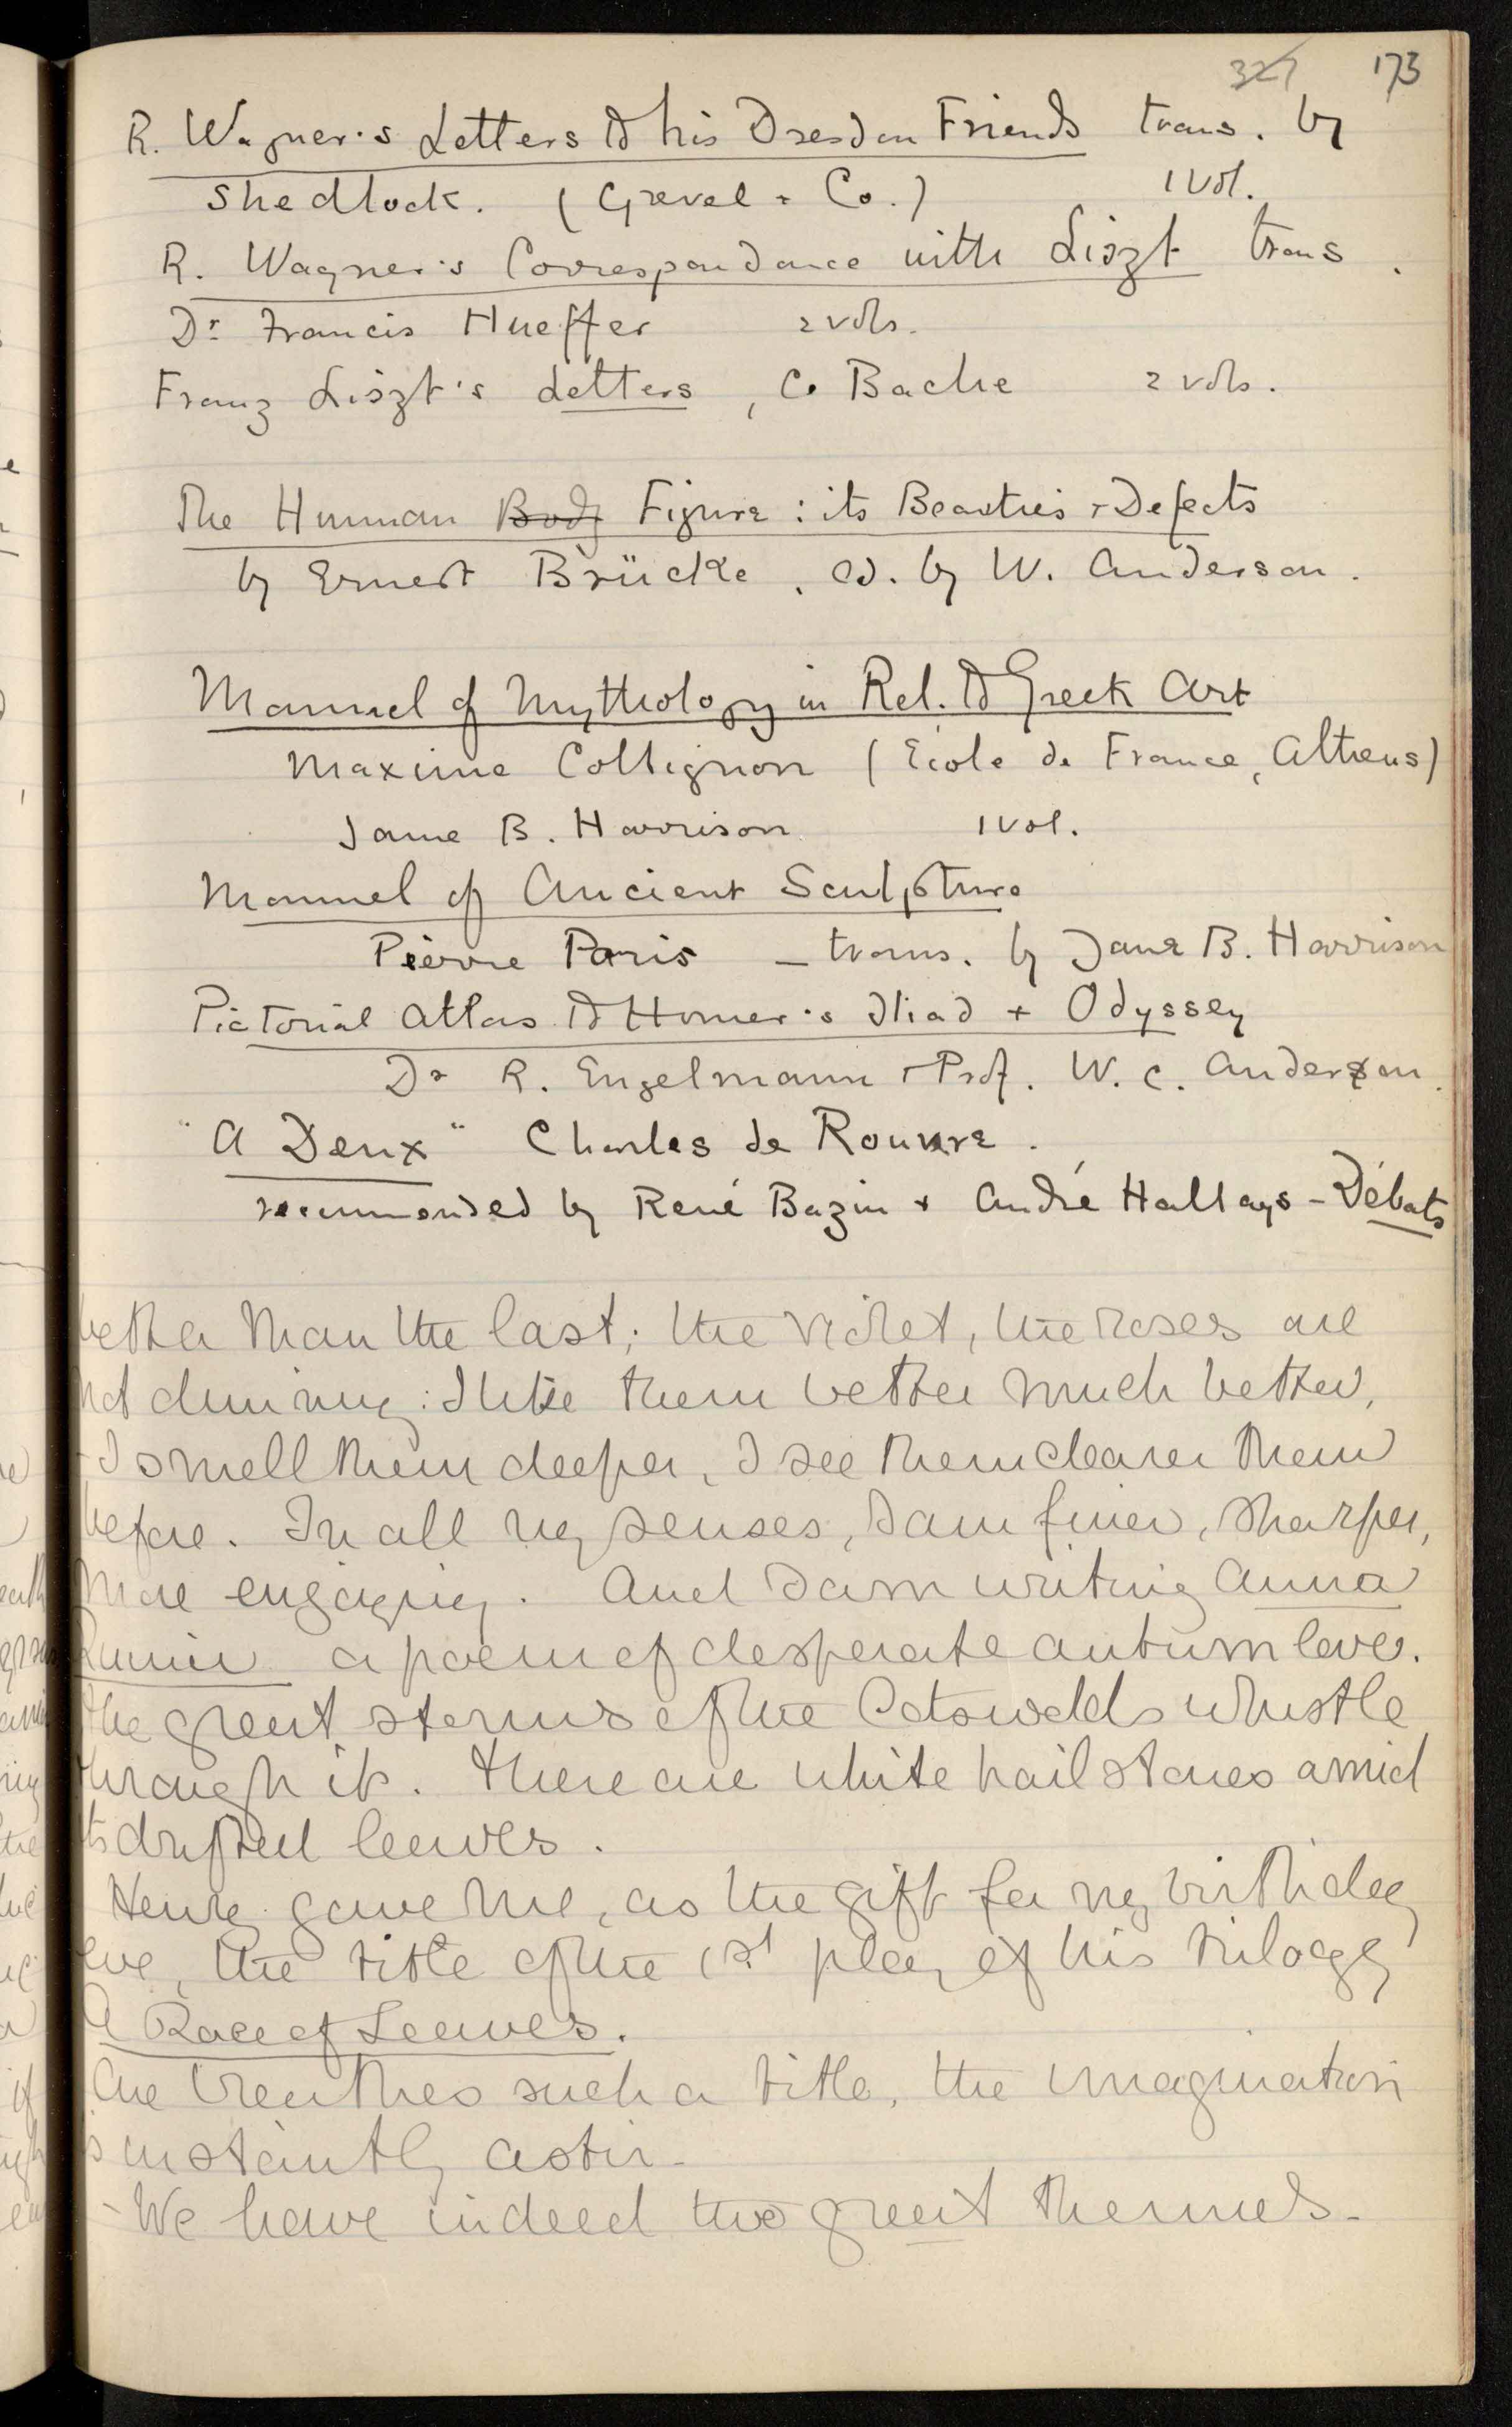 327 173
R. Wagner's Letters to his Dresden Friends trans. by
Shedlock. (Grevel + Co.) 1 vol.
R. Wagner's Correspondance with Liszt trans.
Dr Francis Hueffer 2 vols.
Franz Liszt's Letters, C. Bache 2 vols.
The Human Body Figure: its Beauties + Defects
by Ernest Brücke, ed. by W. Anderson.
Manuel of Mythology in Rel. to Greek Art
Maxime Collignon (École de France, Athens)
Jane B. Harrison 1 vol.
Manuel of Ancient Sculpture
Pierre Paris – trans. by Jane B. Harrison
Pictorial Atlas to Homer's Iliad + Odyssey
Dr R. Engelmann + Prof. W. C. Anderson.
"A Deux" Charles de Rouvre.
recommended by René Bazin + André Hallays – Débats
better than the last; the violet, the roses are
not dimming: I like them better much better,
– I smell them deeper, I see them clearer them
before. In all my senses, I am finer, sharper,
more engaging. And I am writing Anna
Ruina a poem of desperate autumn love.
The great storms of the Cotswolds whistle
through it. There are white hail stones amid
its drifted leaves.
Henry gave me, as the gift for my birthday
eve, the title of the 1st play of his trilogy
A Race of Leaves.
One breathes such a title, the imagination
is instantly astir –
– We have indeed two great themes –